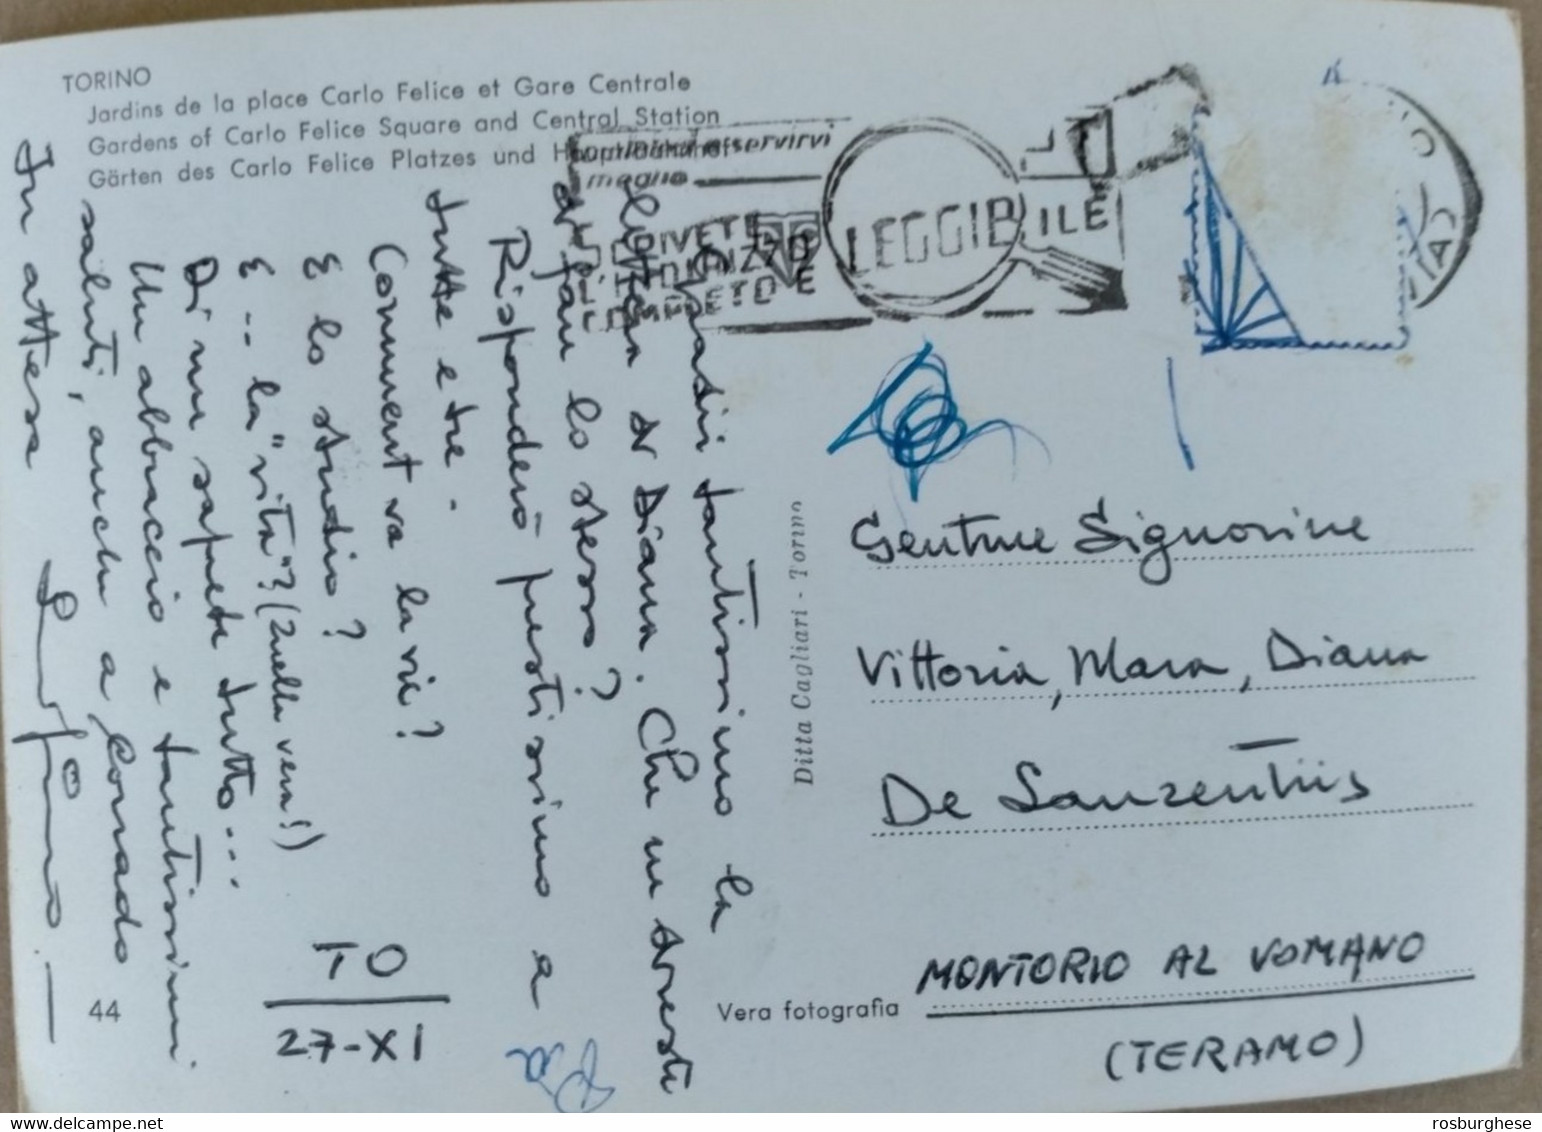 TORINO
Jardins de la place Carlo Felice et Gare Centrale
Gardens of Carlo Felice Square and Central Station
Gärten des Carlo Felice Platzes und Hauptbahnhof
servirvi
meglio
SCRIVETE
L'INDIRIZZO
COMPLETO E
LEGGIBILE
Gradii tantissimo la
lettera di Diana. Chi mi
di fare lo stesso?
Risponderò prestissimo a
tutte e tre.
Comment va la vie?
E lo studio?
E -- la "vita"? (Quella vera!)
Di me sapete tutto...
Un abbraccio e tantissimi
saluti, anche a Corrado
In attesa
TO
27-XI
Pia
Ditta Cagliari - Torino
Gent.me Signorine
Vittoria, Mara, Diana
De Laurentiis
MONTORIO AL VOMANO
(TERAMO)
44
Vera fotografia
rosburghese